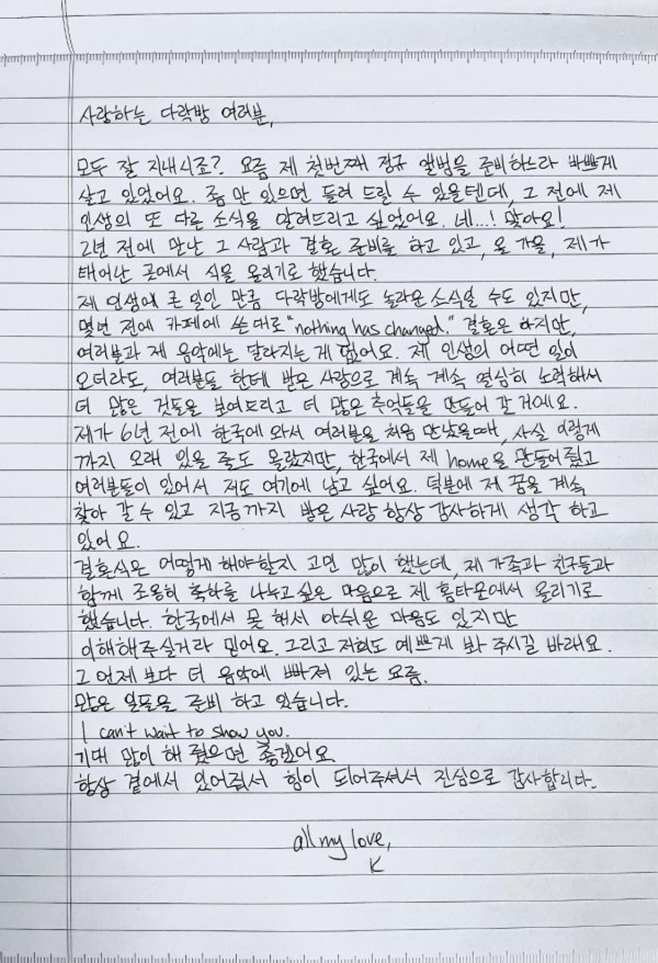 사랑하는 다락방 여러분,
모두 잘 지내시죠? 요즘 제 첫번째 정규 앨범을 준비하느라 바쁘게
살고 있었어요. 좀 만 있으면 들려 드릴 수 있을텐데, 그 전에 제
인생의 또 다른 소식을 알려드리고 싶었어요. 네...! 맞아요!
2년 전에 만난 그 사람과 결혼 준비를 하고 있고, 올 가을, 제가
태어난 곳에서 식을 올리기로 했습니다.
제 인생에 큰 일인 만큼 다락방에게도 놀라운 소식일 수도 있지만,
몇번 전에 카페에 쓴 대로 "nothing has changed." 결혼은 하지만,
여러분과 제 음악에는 달라지는 게 없어요. 제 인생의 어떤 일이
오더라도, 여러분들 한테 받은 사랑으로 계속 계속 열심히 노력해서
더 많은 것들을 보여드리고 더 많은 추억들을 만들어 갈 거에요.
제가 6년 전에 한국에 와서 여러분을 처음 만났을때, 사실 이렇게
까지 오래 있을 줄도 몰랐지만, 한국에서 제 home을 만들어 줬고
여러분들이 있어서 저도 여기에 남고 싶어요. 덕분에 제 꿈을 계속
찾아 갈 수 있고 지금까지 받은 사랑 항상 감사하게 생각 하고
있어요.
결혼식은 어떻게 해야할지 고민 많이 했는데, 제 가족과 친구들과
함께 조용히 축하를 나누고 싶은 마음으로 제 홈타운에서 올리기로
했습니다. 한국에서 못 해서 아쉬운 마음도 있지만
이해해주실거라 믿어요. 그리고 저희도 예쁘게 봐 주시길 바래요.
그 언제 보다 더 음악에 빠져 있는 요즘.
많은 일들을 준비 하고 있습니다.
I can't wait to show you.
기대 많이 해 줬으면 좋겠어요
항상 곁에서 있어줘서 힘이 되어주셔서 진심으로 감사합니다.
all my love,
K